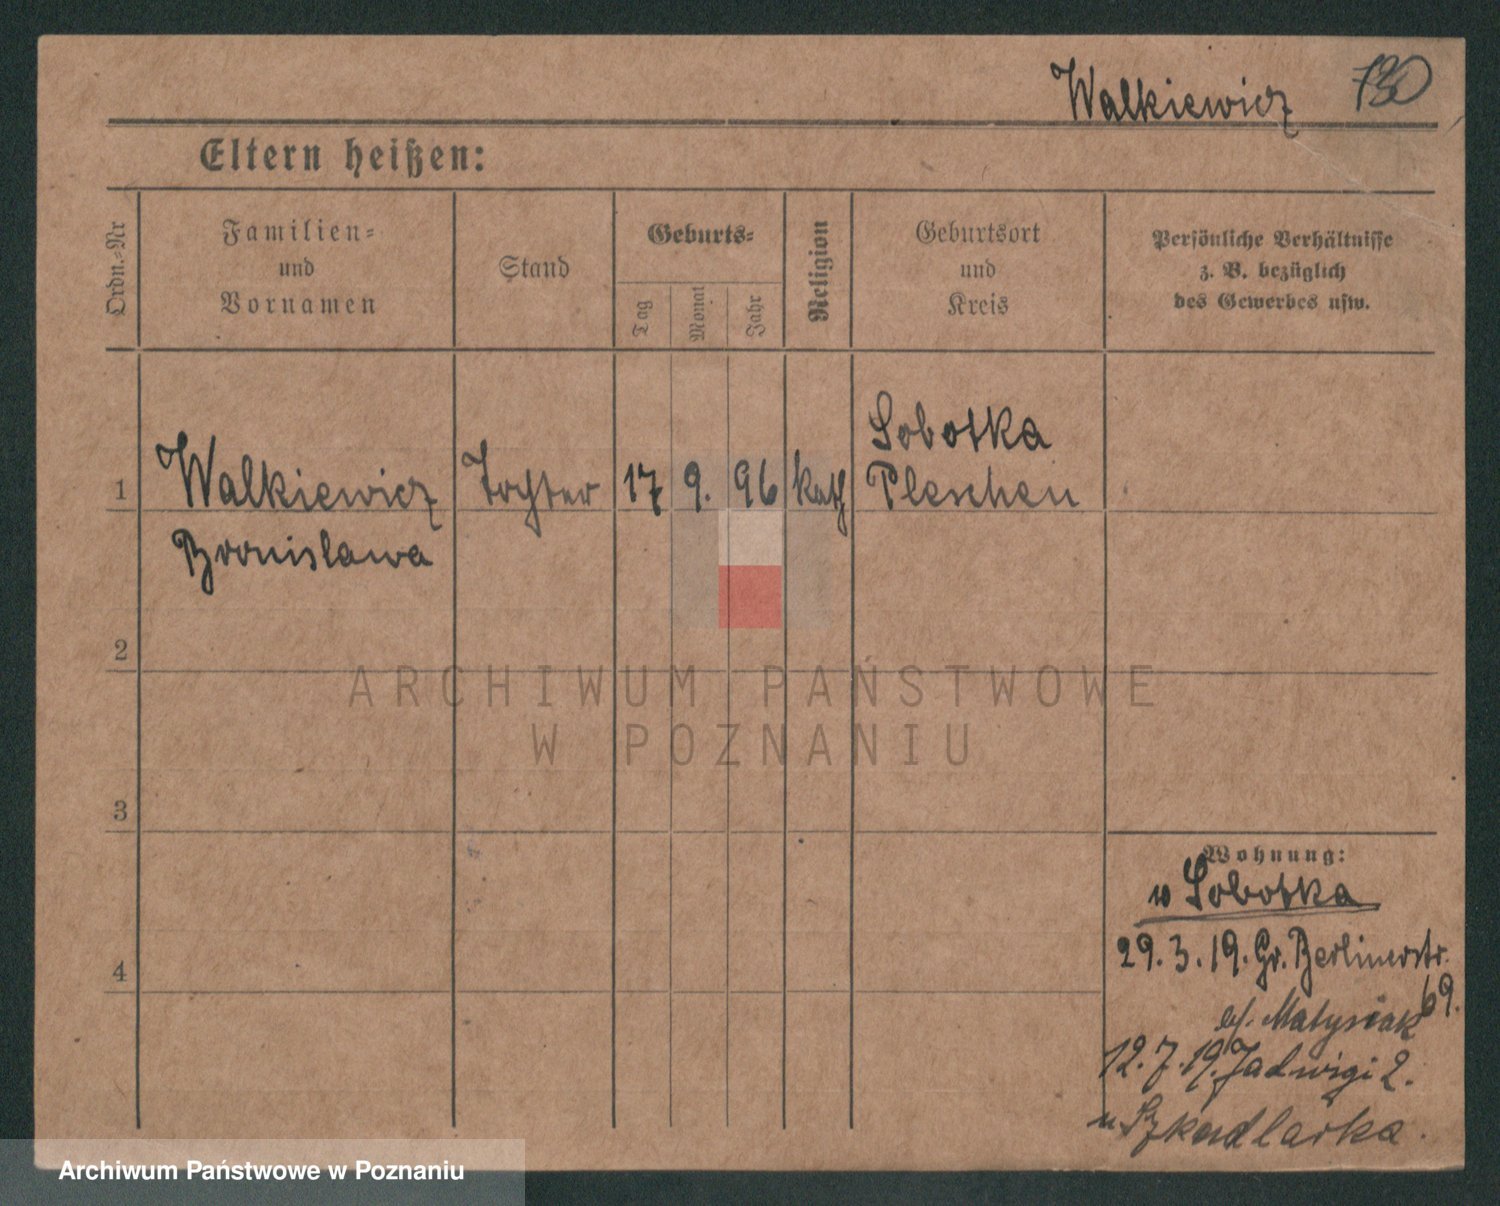 Walkiewicz 730
Eltern heißen:
Ordn.-Nr
Familien-
und
Vornamen
Stand
Geburts-
Tag
Monat
Jahr
Religion
Geburtsort
und
Kreis
Persönliche Verhältnisse
z. B. bezüglich
des Gewerbes usw.
Sobotka
1 Walkiewicz Tochter 17 9. 96 kath Pleschen
Bronislawa
2
ARCHIWUM PAŃSTWOWE
W POZNANIU
3
Wohnung:
w Sobotka
4
29.3.19. Gr. Berlinerstr.
69.
bf. Matysiak
12.7.19. Jadwigi 2.
u Szkudlarka.
Archiwum Państwowe w Poznaniu